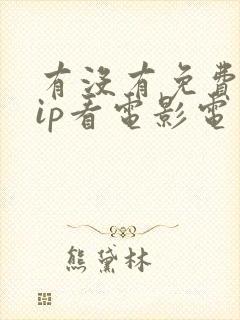 有没有免費
ip看電影電
熊黛林